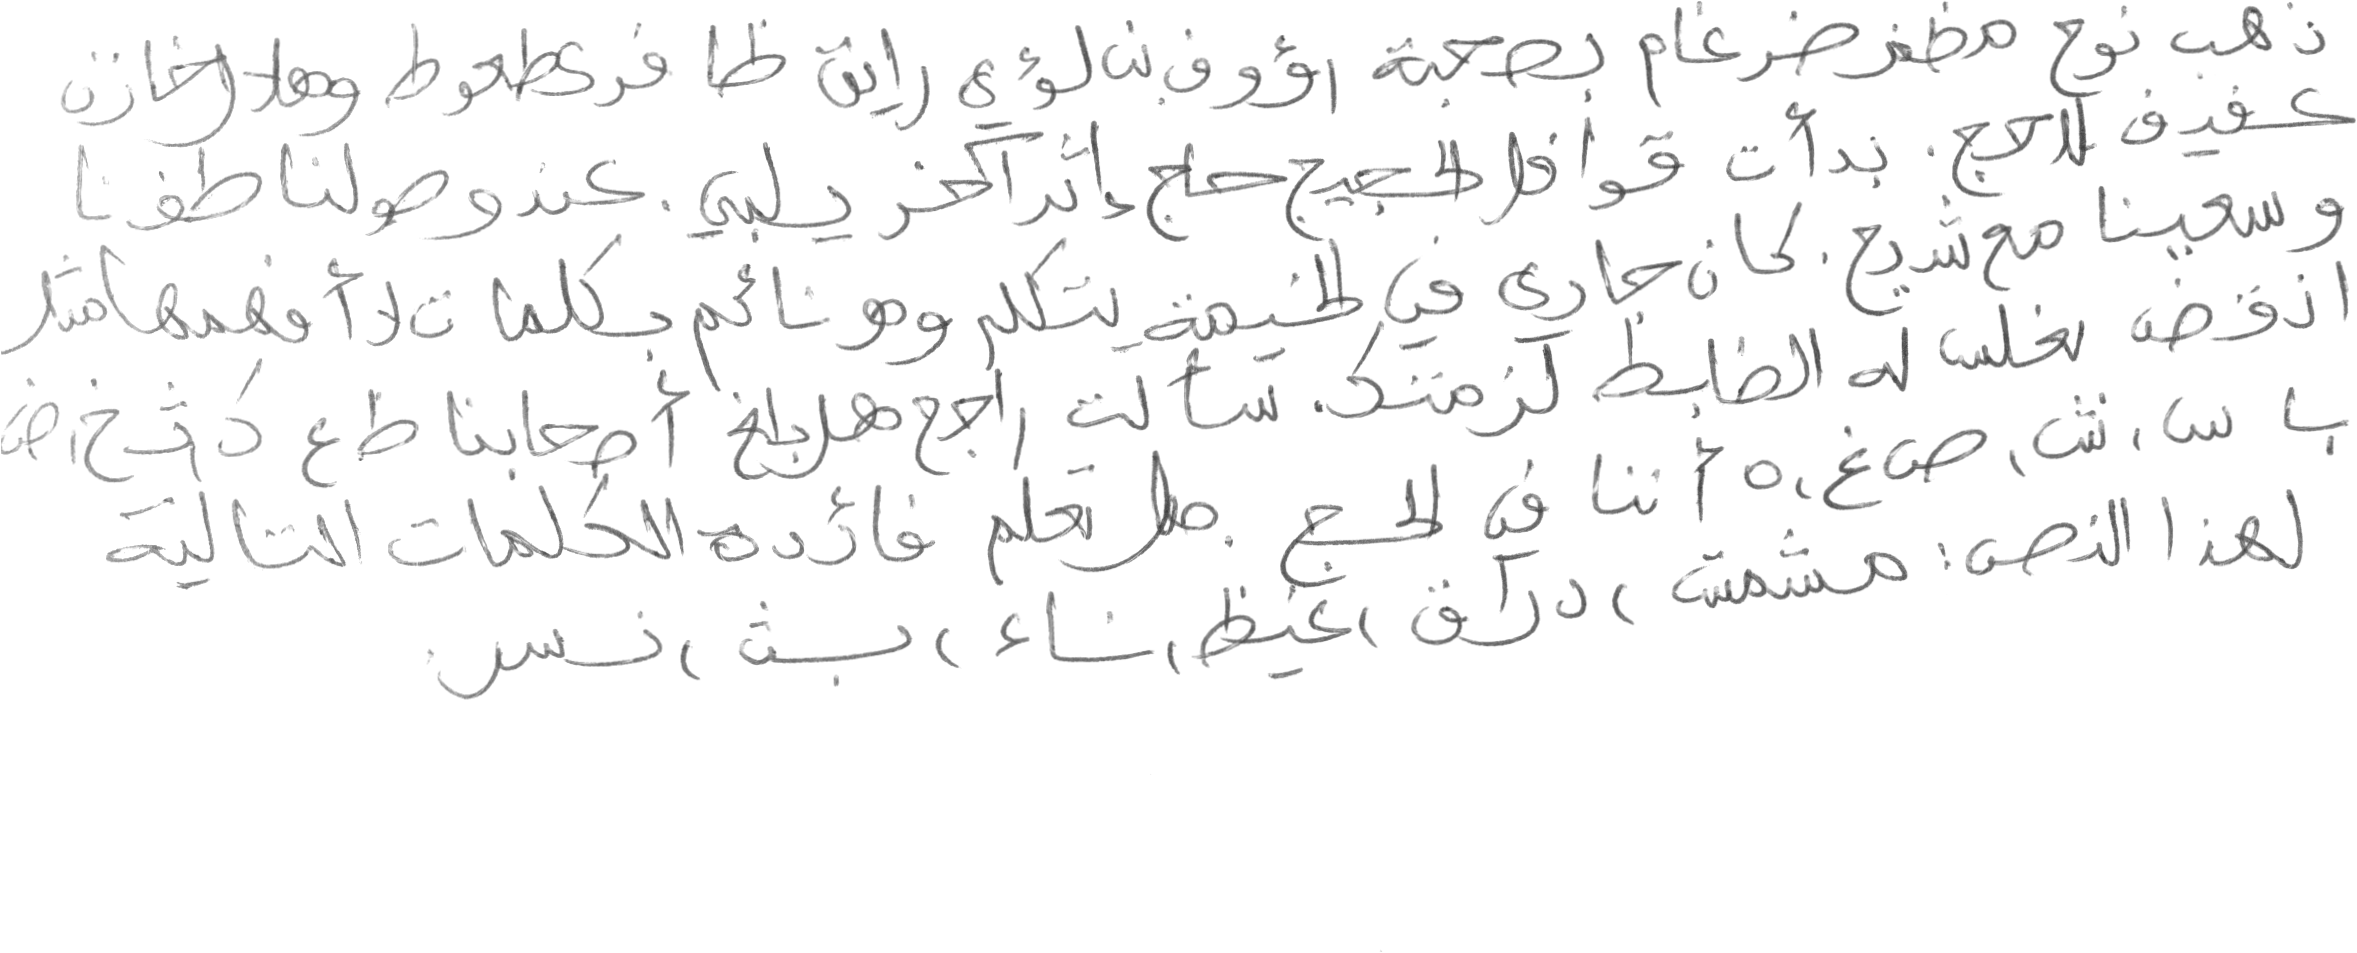 ذهب نوح مظفر ضرغام بصحبة رؤوف بن لؤي رايق ظافر عطعوط وهلال خازن
عفيف للحج. بدأت قوافل الحجيج حاج بأثر آخر يلبي. عند وصولنا طفنا
وسعينا مع شريح. كان جاري في الخيمة يتكلم وهو نائم بكلمات لا أفهمها مثل
انقض نغلس له الضابط لزمتك. سألت راجح هل بلغ أصحابنا ط ع ك ث خ، ض
با س، ش، ص غ، ه أننا في الحج. هل تعلم فائدة الكلمات التالية
لهذا النص: مشمش، درآق، غيظ، شاء، بث، نسر.